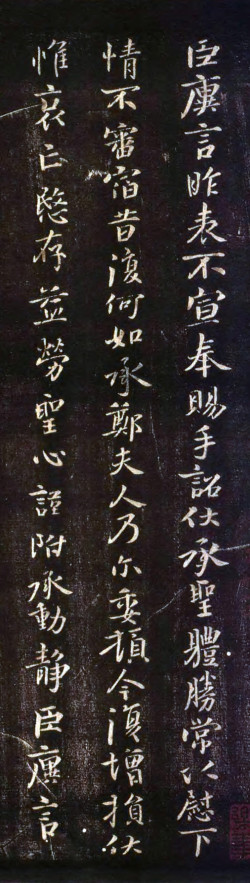 臣廙言昨表不宣奉賜手詔伏承聖體勝常以慰下
情不審宿昔復何如承鄭夫人乃尓委頓今復增損伏
惟哀亡愍存益勞聖心謹附承動靜臣廙言